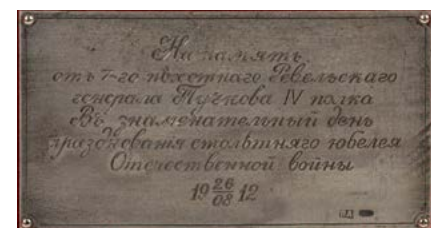 На память
отъ 7-го пѣхотнаго Ревельскаго
генерала Тучкова IV полка
Въ знаменательный день
празднованія столѣтняго юбелея
Отечественной войны
19 26/08 12